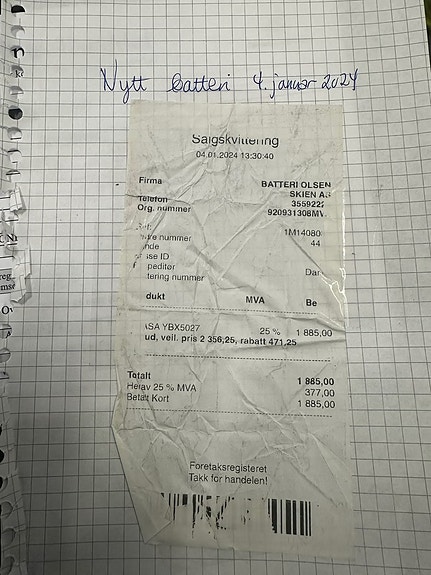 Nytt batteri 4. januar 2024
Salgskvittering
04.01.2024 13:30:40
Firma BATTERI OLSEN
SKIEN AS
Telefon 355922
Org. nummer 920931308MV
1M14080
nummer 44
nde
se ID
peditør Dan
tering nummer
dukt MVA Be
ASA YBX5027 25 % 1 885,00
ud, veil. pris 2 356,25, rabatt 471,25
Totalt 1 885,00
Herav 25 % MVA 377,00
Betalt Kort 1 885,00
Foretaksregisteret
Takk for handelen!